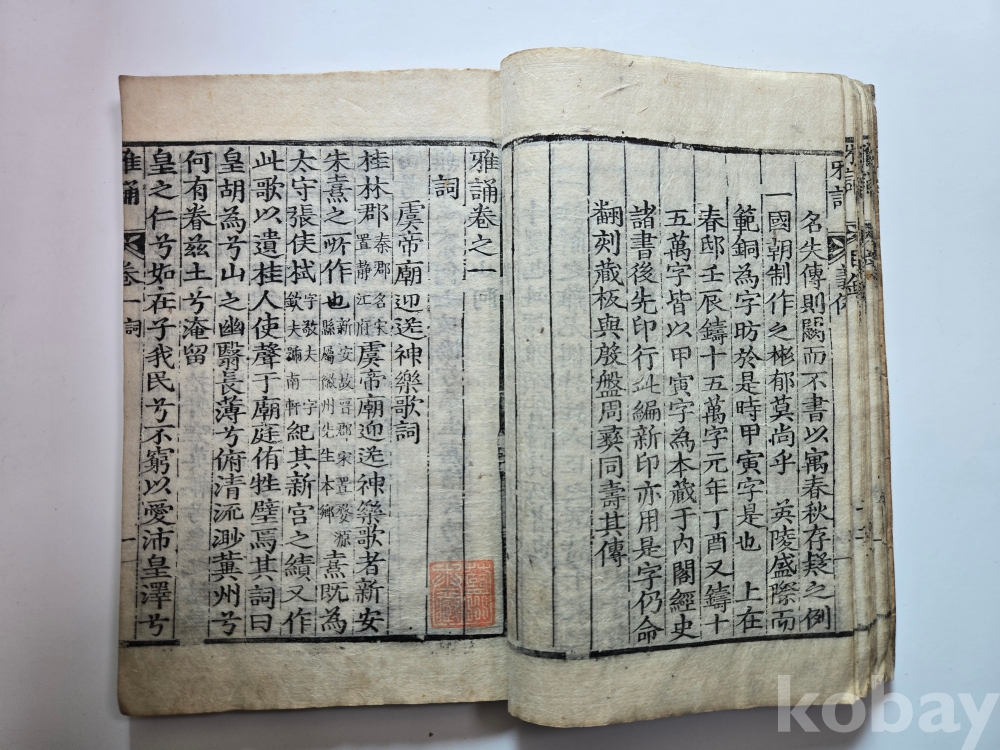 名失傳則闕而不書以寓春秋存疑之例
一國朝制作之彬郁莫尚乎 英陵盛際而
範銅為字昉於是時甲寅字是也 上在
春邸壬辰鑄十五萬字元年丁酉又鑄十
五萬字皆以甲寅字為本藏于內閣經史
諸書後先印行此編新印亦用是字仍命
翻刻藏板與殷盤周彝同壽其傳
雅誦卷之一
詞
虞帝廟迎送神樂歌詞
桂林郡秦郡名宋置静江府虞帝廟迎送神樂歌者新安
朱熹之所作也新安故晉郡宋置婺源縣屬徽州先生本鄉熹既為
太守張侯栻字敬夫一字欽夫號南軒紀其新宮之績又作
此歌以遺桂人使聲于廟庭侑牲璧焉其詞曰
皇胡為兮山之幽翳長薄兮俯清流渺冀州兮
何有眷茲土兮淹留
皇之仁兮如在子我民兮不窮以愛沛皇澤兮
雅誦 卷一 詞 一
kobay